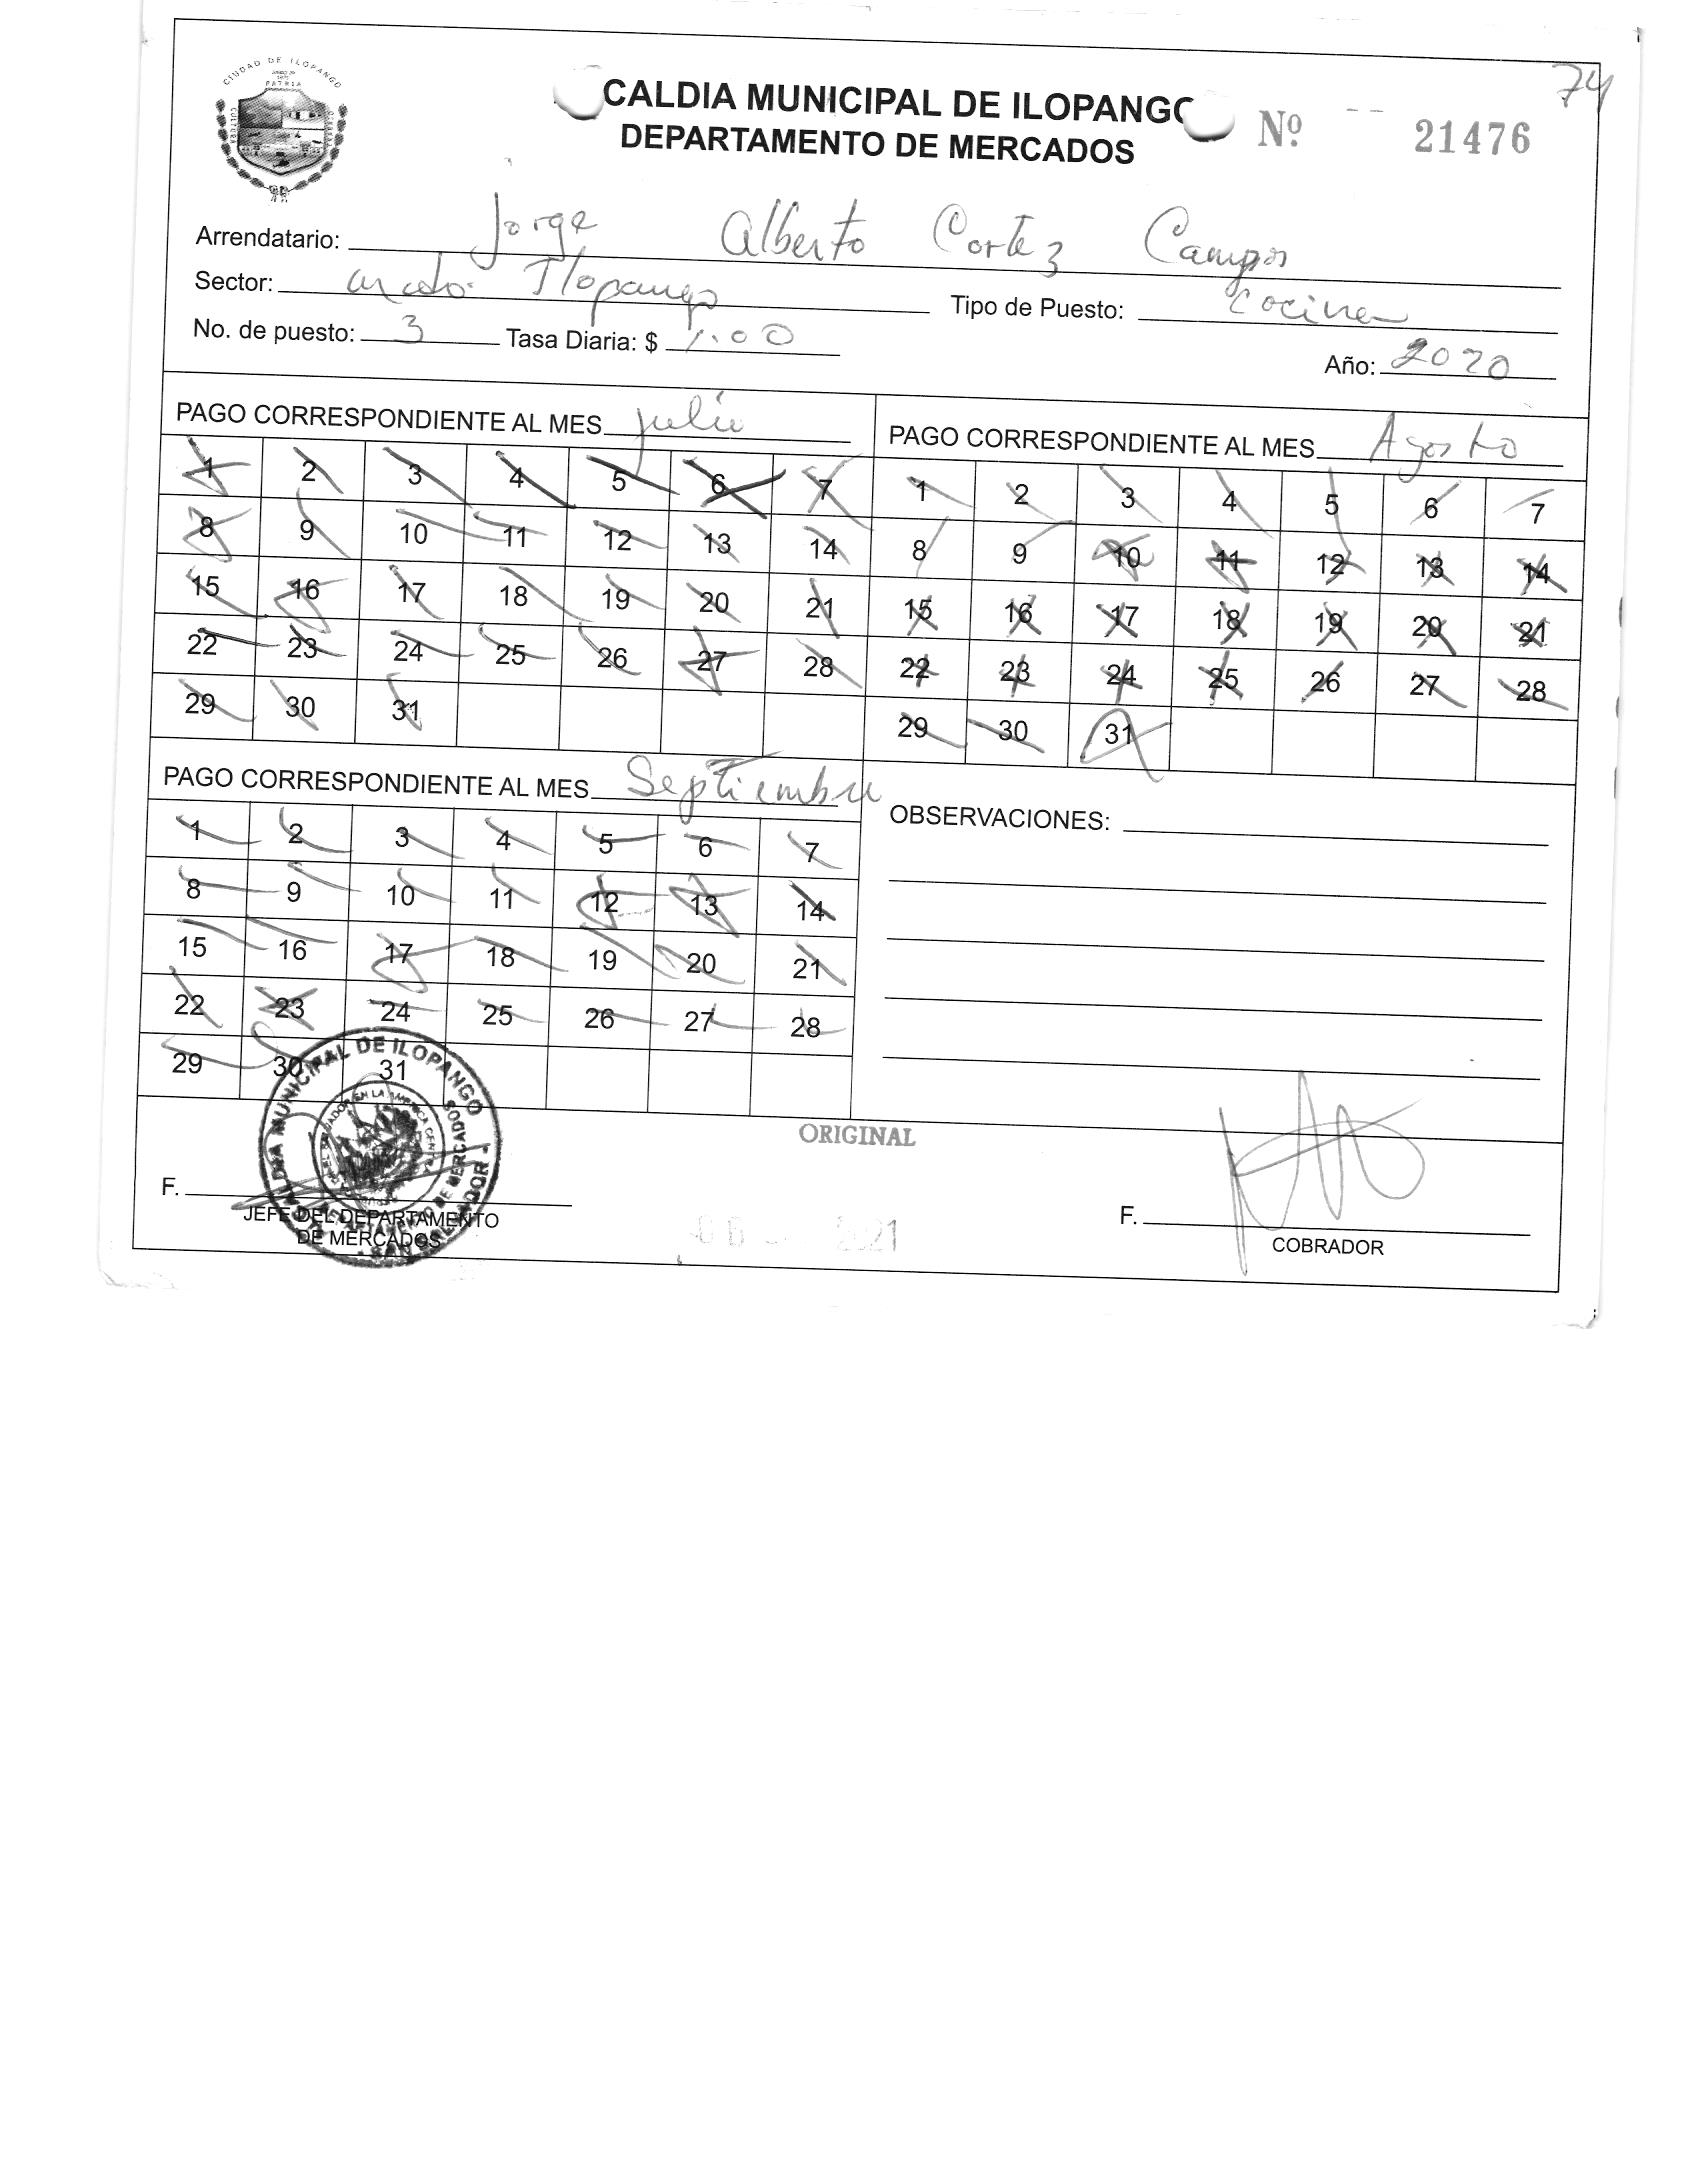 74
CIUDAD DE ILOPANGO
PATRIA
CULTURA
CALDIA MUNICIPAL DE ILOPANGO
DEPARTAMENTO DE MERCADOS
Nº 21476
Arrendatario: Jorge Alberto Cortez Campos
Sector: Ilopango Tipo de Puesto: Cocina
No. de puesto: 3 Tasa Diaria: $ 1.00
Año: 2020
PAGO CORRESPONDIENTE AL MES julio
1 2 3 4 5 6 7
8 9 10 11 12 13 14
15 16 17 18 19 20 21
22 23 24 25 26 27 28
29 30 31
PAGO CORRESPONDIENTE AL MES Agosto
1 2 3 4 5 6 7
8 9 10 11 12 13 14
15 16 17 18 19 20 21
22 23 24 25 26 27 28
29 30 31
PAGO CORRESPONDIENTE AL MES Septiembre
1 2 3 4 5 6 7
8 9 10 11 12 13 14
15 16 17 18 19 20 21
22 23 24 25 26 27 28
29 30 31
OBSERVACIONES:
ORIGINAL
F.
JEFE DEL DEPARTAMENTO
DE MERCADOS
MUNICIPAL DE ILOPANGO
DEPARTAMENTO DE MERCADOS
06 2021
F.
COBRADOR